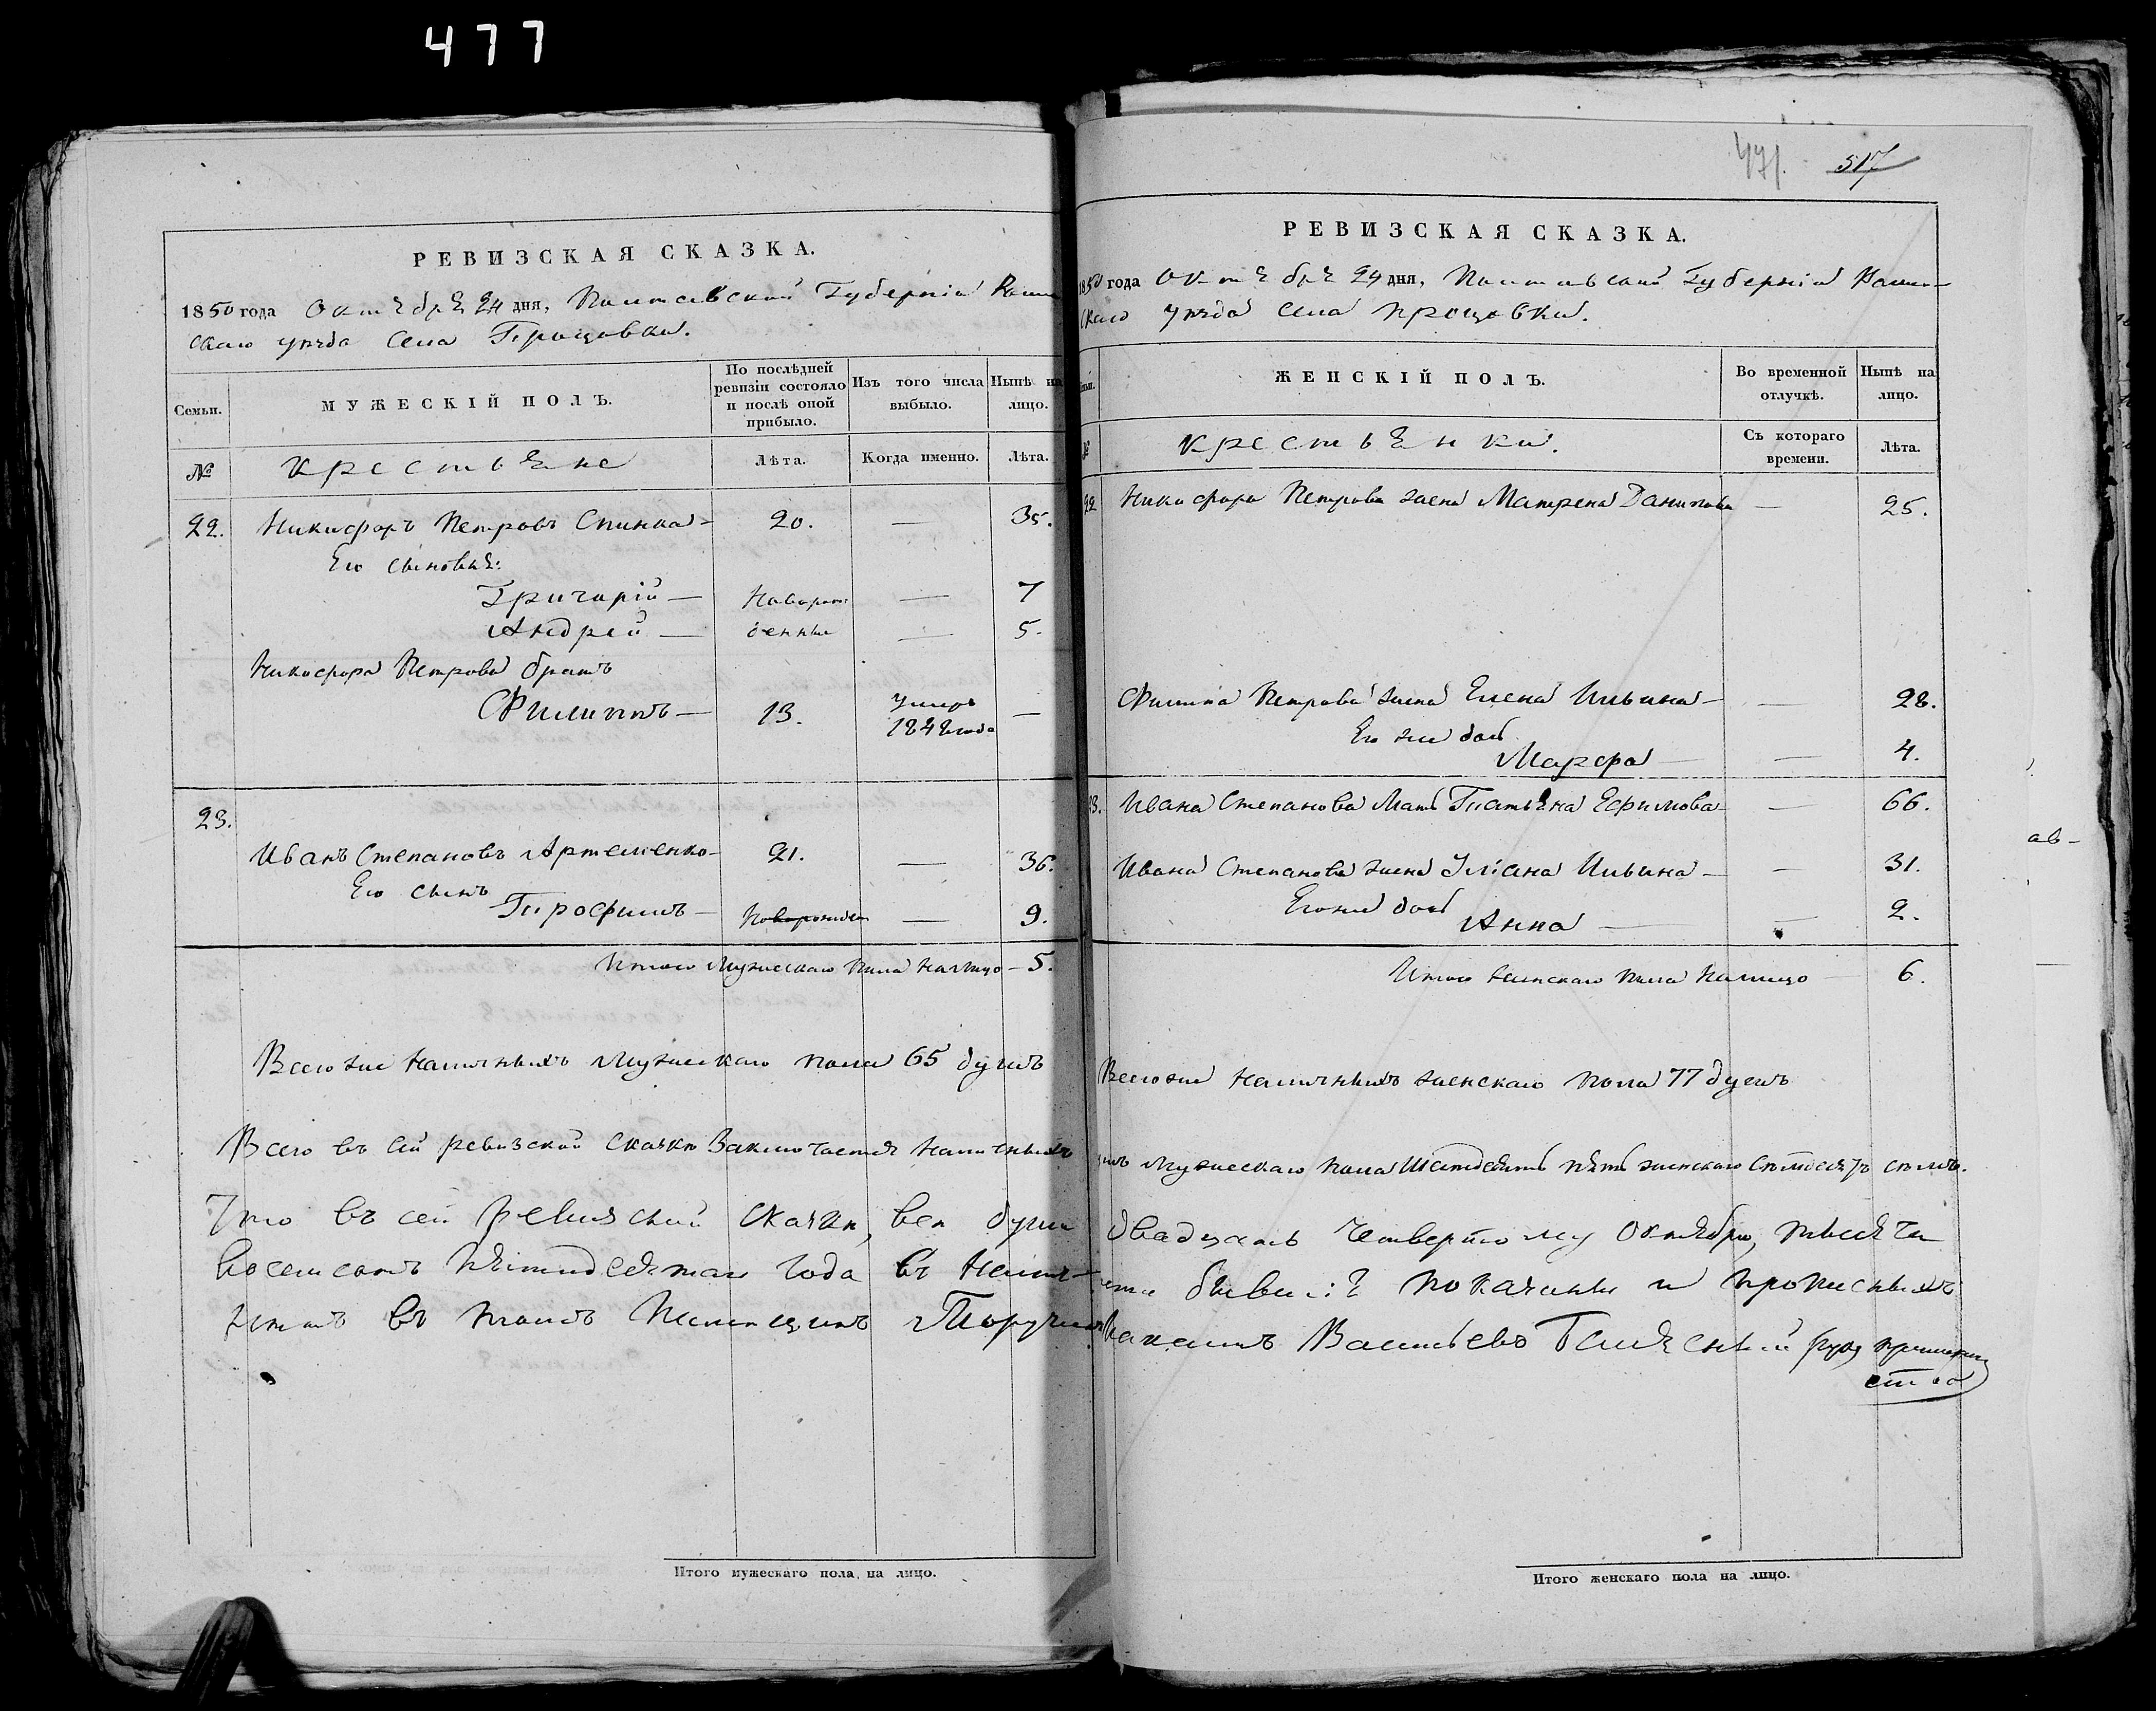 477
РЕВИЗСКАЯ СКАЗКА.
1850 года Октября 24 дня, Полтавской Губерніи Роме
скаго уезда Села Процовки.
Семьи.
МУЖЕСКІЙ ПОЛЪ.
По послѣдней ревизіи состояло и послѣ оной прибыло.
Изъ того числа выбыло.
Нынѣ на лицо.
№
Крестьяне
Лѣта.
Когда именно.
Лѣта.
22. Никифоръ Петровъ Спинка — 20. — 35.
Его сыновья:
Григорій — Новорож — 7
Андрей — денны — 5.
Никифора Петрова братъ
Филиппъ — 13. умеръ —
1848 года
23.
Иванъ Степановъ Артеменко — 21. — 36.
Его сынъ
Трофимъ — Новорожден — 9.
Итого Мужескаго пола на лицо — 5.
Всего же наличныхъ Мужескаго пола 65 душъ
Всего въ сей ревизской сказке Заключается наличныхъ
Что въ сей ревизской сказки, все души
восемсотъ пятидесятаго года въ
въ томъ
Итого мужескаго пола, на лицо.
471. 517
РЕВИЗСКАЯ СКАЗКА.
1850 года Октября 24 дня, Полтавской Губерніи Роме-
скаго уезда Села Процовки.
ЖЕНСКІЙ ПОЛЪ.
Во временной отлучкѣ.
Нынѣ на лицо.
№
Крестьянки.
Съ котораго времени.
Лѣта.
22 Никифора Петрова жена Матрена Данилова — 25.
Филипа Петрова жена Елена Ильина — — 28.
Его же дочь
Марфа — — 4.
23. Ивана Степанова Мать Татьяна Ефимова — 66.
Ивана Степанова жена Уліана Ильина — — 31.
Его же дочь
Анна — — 2.
Итого женскаго пола на лицо — 6.
Всего же наличныхъ женскаго пола 77 душъ
Мужескаго пола шестдесятъ пять женскаго семдесятъ семъ.
двадцать четвертому октября, тысяча
показаны и прописныхъ
Васильевъ
Итого женскаго пола на лицо.
ав-